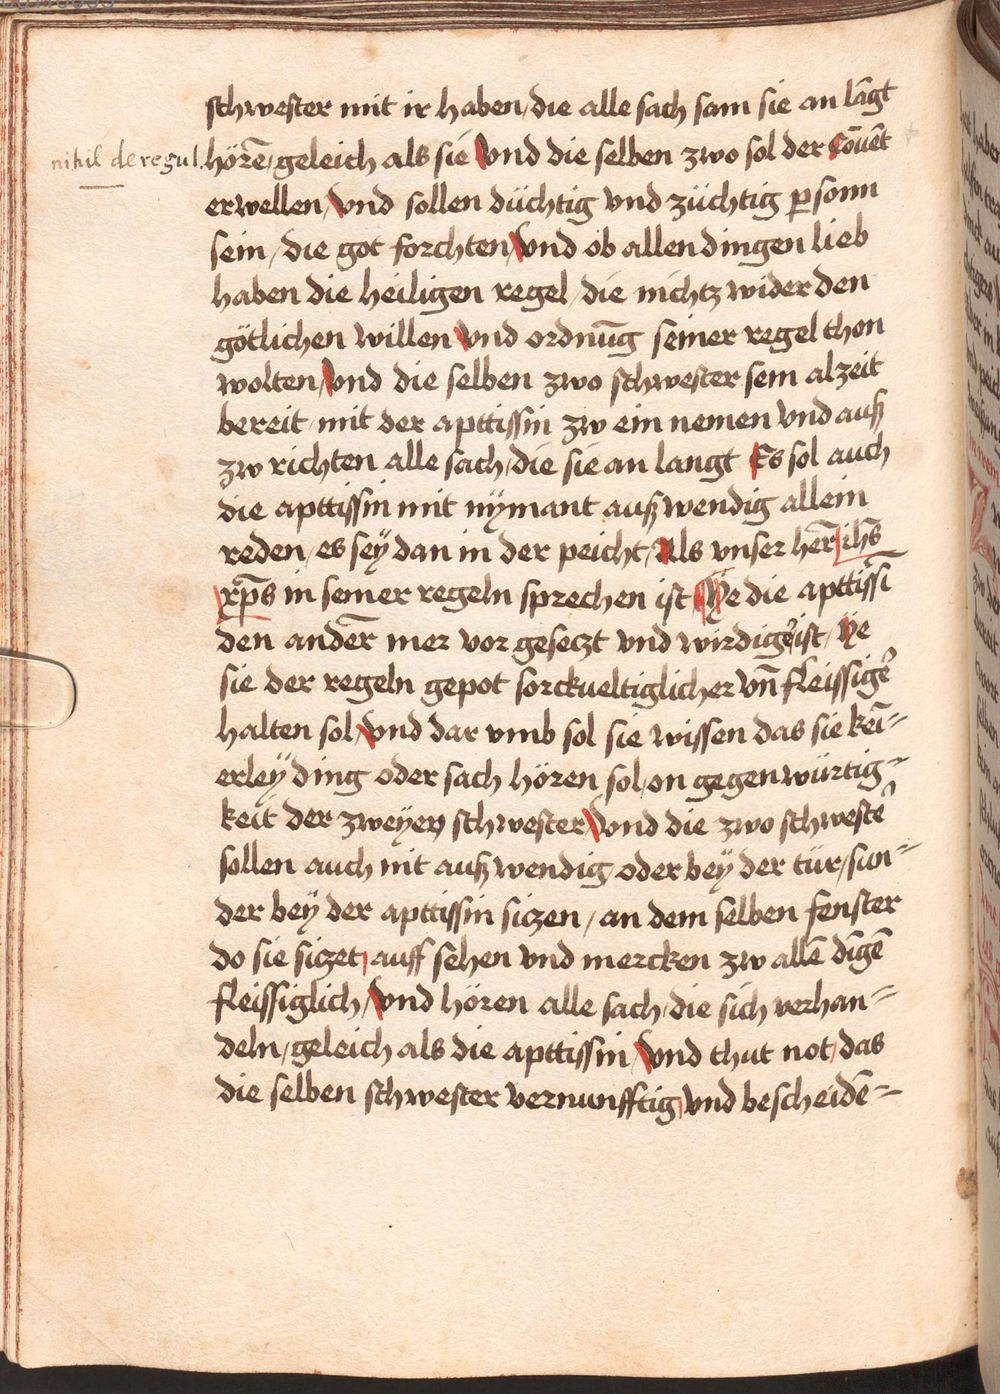 schwester mit ir haben / die alle sach sam sie an lāgt
nihil de regul.
hörē / geleich als sie Vnd die selben zwo sol der Cōuēt
erwellen / Vnd sollen düchtig vnd züchtig ꝑsonn
sein / die got forchten / Vnd ob allen dingen lieb
haben die heiligen regel / die nichtz wider den
götlichen willen Vnd ordnūg seiner regel thon
wolten / Vnd die selben zwo schwester sein alzeit
bereit / mit der apttissin zw ein nemen vnd auß
zw richten alle sach / die sie an langt Es sol auch
die apttissin mit nÿmant außwendig allein
reden / es seÿ dan in der peicht / Als vnser her̄ ih̄s
xp̄s in seiner regeln sprechen ist Ye die apttissī
den ander̄ mer vor geseczt vnd wirdiger ist / Ye
sie der regeln gepot sorckueltiglicher vn̄ fleissiger
halten sol / Vnd dar vmb sol sie wissen das sie kei=
erleÿ ding oder sach hören sol / on gegenwürtig=
keit der zweÿen schwester / Vnd die zwo schwester
sollen auch nit außwendig / oder beÿ der tür / sun=
der beÿ der apttissin siczen / an dem selben fenster
do sie siczet / auff sehen vnd mercken zw allē dīgē
fleissiglich / Vnd hören alle sach / die sich verhan=
deln / geleich als die apttissin / Vnd thut not / das
die selben schwester vernunfftig / vnd bescheidē=